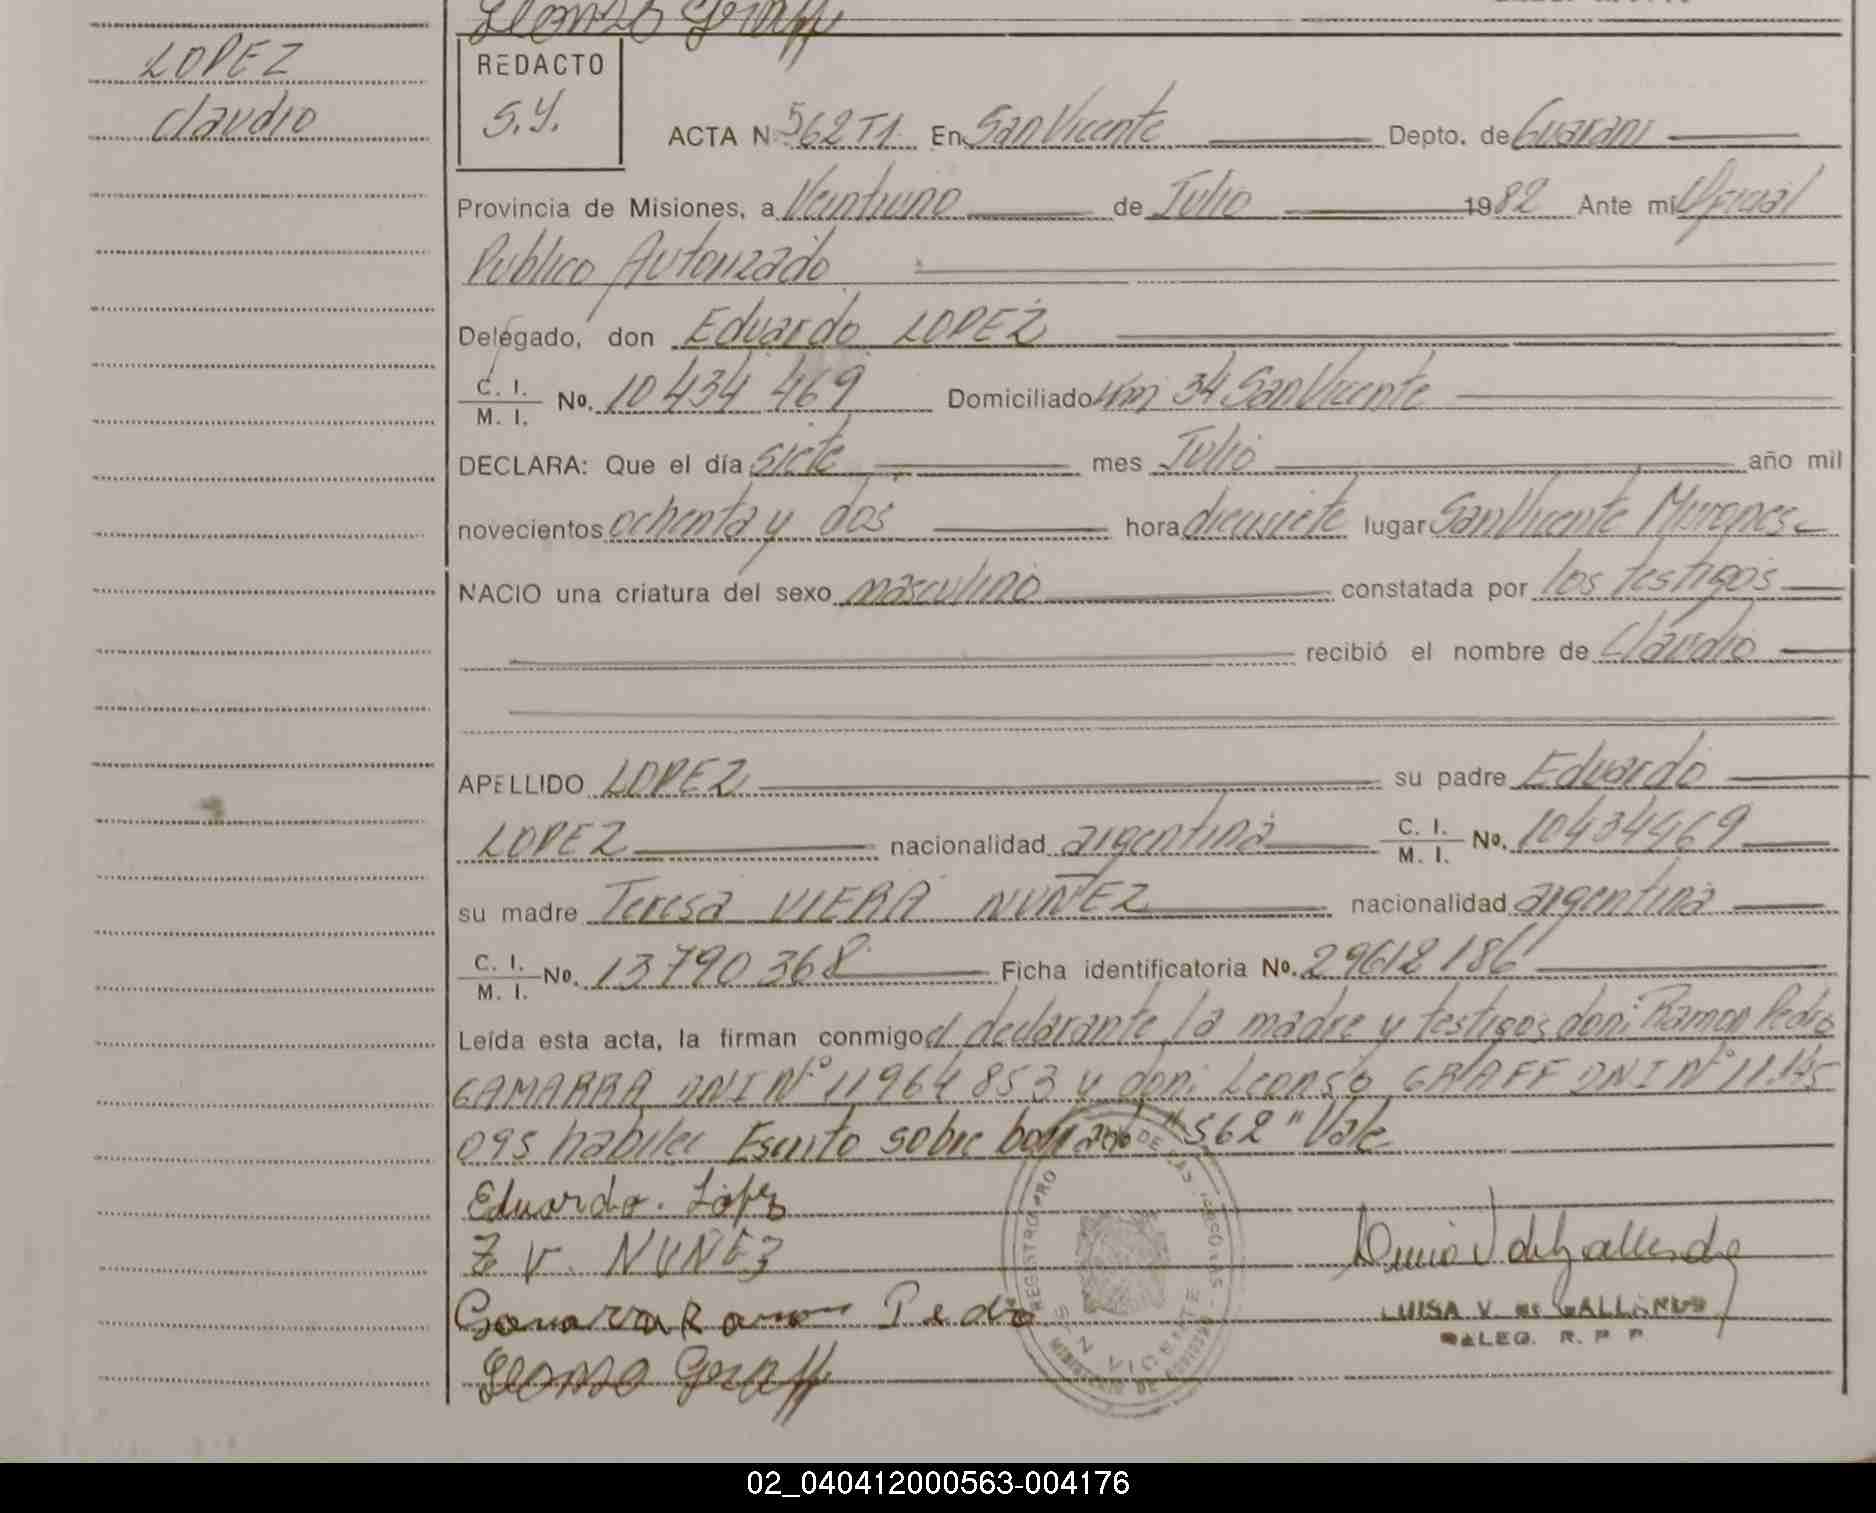 Leonso Graff
LOPEZ
Claudio
REDACTO
S.Y.
ACTA Nº 562 T1 En San Vicente Depto. de Guarani
Provincia de Misiones, a Veintiuno de Julio 1982 Ante mí Oficial
Publico Autorizado
Delegado, don Eduardo LOPEZ
C. I. / M. I. No. 10434 469 Domiciliado Km 34 San Vicente
DECLARA: Que el día siete mes Julio año mil
novecientos ochenta y dos hora diecisiete lugar San Vicente Misiones
NACIO una criatura del sexo masculino constatada por los testigos
recibió el nombre de Claudio
APELLIDO LOPEZ su padre Eduardo
LOPEZ nacionalidad argentina C. I. / M. I. No. 10434469
su madre Teresa VIERA NUÑEZ nacionalidad argentina
C. I. / M. I. No. 13790 368 Ficha identificatoria No. 29612186
Leída esta acta, la firman conmigo el declarante, la madre y testigos don: Ramon Pedro
GAMARRA DNI Nº 11964 853 y don: Leonso GRAFF DNI Nº 11.145
095 habiles Escrito sobre borrado "562" Vale
Eduardo. López
V. NUÑEZ
Gamarra Ramon Pedro
REGISTRO PRO DE LAS PERSONAS
MINISTERIO DE GOBIERNO
S N VICENTE
LUISA V. DE GALLARDO
DELEG. R. P. P.
Leonso Graff
02_040412000563-004176